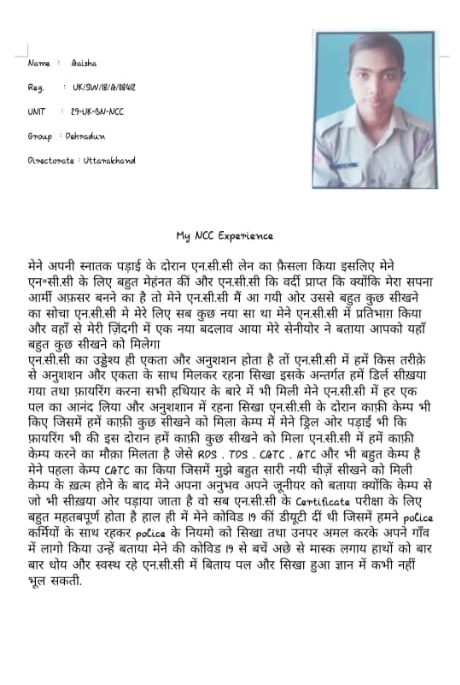 Name : Aaisha
Reg. : UK/SW/18/A/118412
UNIT : 29-UK-BN-NCC
Group : Dehradun
Directorate : Uttarakhand
My NCC Experience
मेने अपनी स्नातक पड़ाई के दोरान एन.सी.सी लेन का फ़ैसला किया इसलिए मेने
एन॰सी.सी के लिए बहुत मेहंनत कीं और एन.सी.सी कि वर्दी प्राप्त कि क्योंकि मेरा सपना
आर्मी अफ़सर बनने का है तो मेने एन.सी.सी मैं आ गयी ओर उससे बहुत कुछ सीखने
का सोचा एन.सी.सी मे मेरे लिए सब कुछ नया सा था मेने एन.सी.सी में प्रतिभाग़ किया
और वहाँ से मेरी ज़िंदगी में एक नया बदलाव आया मेरे सेनीयोर ने बताया आपको यहाँ
बहुत कुछ सीखने को मिलेगा
एन.सी.सी का उड्डेश्य ही एकता और अनुशशन होता है तों एन.सी.सी में हमें किस तरीक़े
से अनुशशन और एकता के साथ मिलकर रहना सिखा इसके अन्तर्गत हमें डिर्ल सीख़या
गया तथा फ़ायरिंग करना सभी हथियार के बारे में भी मिली मेने एन.सी.सी में हर एक
पल का आनंद लिया और अनुशशान में रहना सिखा एन.सी.सी के दोरान काफ़ी केम्प भी
किए जिसमें हमें काफ़ी कुछ सीखने को मिला केम्प में मेने ड्रिल ओर पड़ाई भी कि
फ़ायरिंग भी की इस दोरान हमें काफ़ी कुछ सीखने को मिला एन.सी.सी में हमें काफ़ी
केम्प करने का मौक़ा मिलता है जेसे RDS . TDS . CATC . ATC और भी बहुत केम्प है
मेने पहला केम्प CATC का किया जिसमें मुझे बहुत सारी नयी चीज़ें सीखने को मिली
केम्प के ख़त्म होने के बाद मेने अपना अनुभव अपने जूनीयर को बताया क्योंकि केम्प से
जो भी सीख़या ओर पड़ाया जाता है वो सब एन.सी.सी के Certificate परीक्षा के लिए
बहुत महतबपूर्ण होता है हाल ही में मेने कोविड 19 कीं डीयूटी दीं थी जिसमें हमने police
कर्मियों के साथ रहकर police के नियमो को सिखा तथा उनपर अमल करके अपने गाँव
में लागो किया उन्हें बताया मेने की कोविड 19 से बचें अछे से मास्क लगाय हाथों को बार
बार धोय और स्वस्थ रहे एन.सी.सी में बिताय पल और सिखा हुआ ज्ञान में कभी नहीं
भूल सकती.